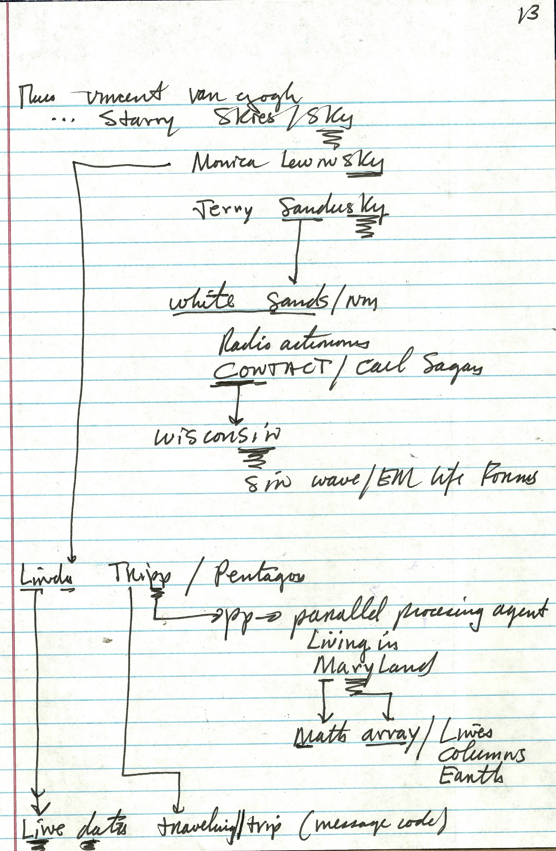 13
Thus vincent van gogh
... Starry Skies/Sky
Monica Lewinsky
Jerry Sandusky
white Sands/NM
Radio astronoms
CONTACT / Carl Sagan
Wisconsin
Sin wave/EM Life Forms
Linda Tripp / Pentagon
pp → parallel procesing agent
Living in
Maryland
Math array/Lines
columns
Earth
Line data traveling/trip (message code)